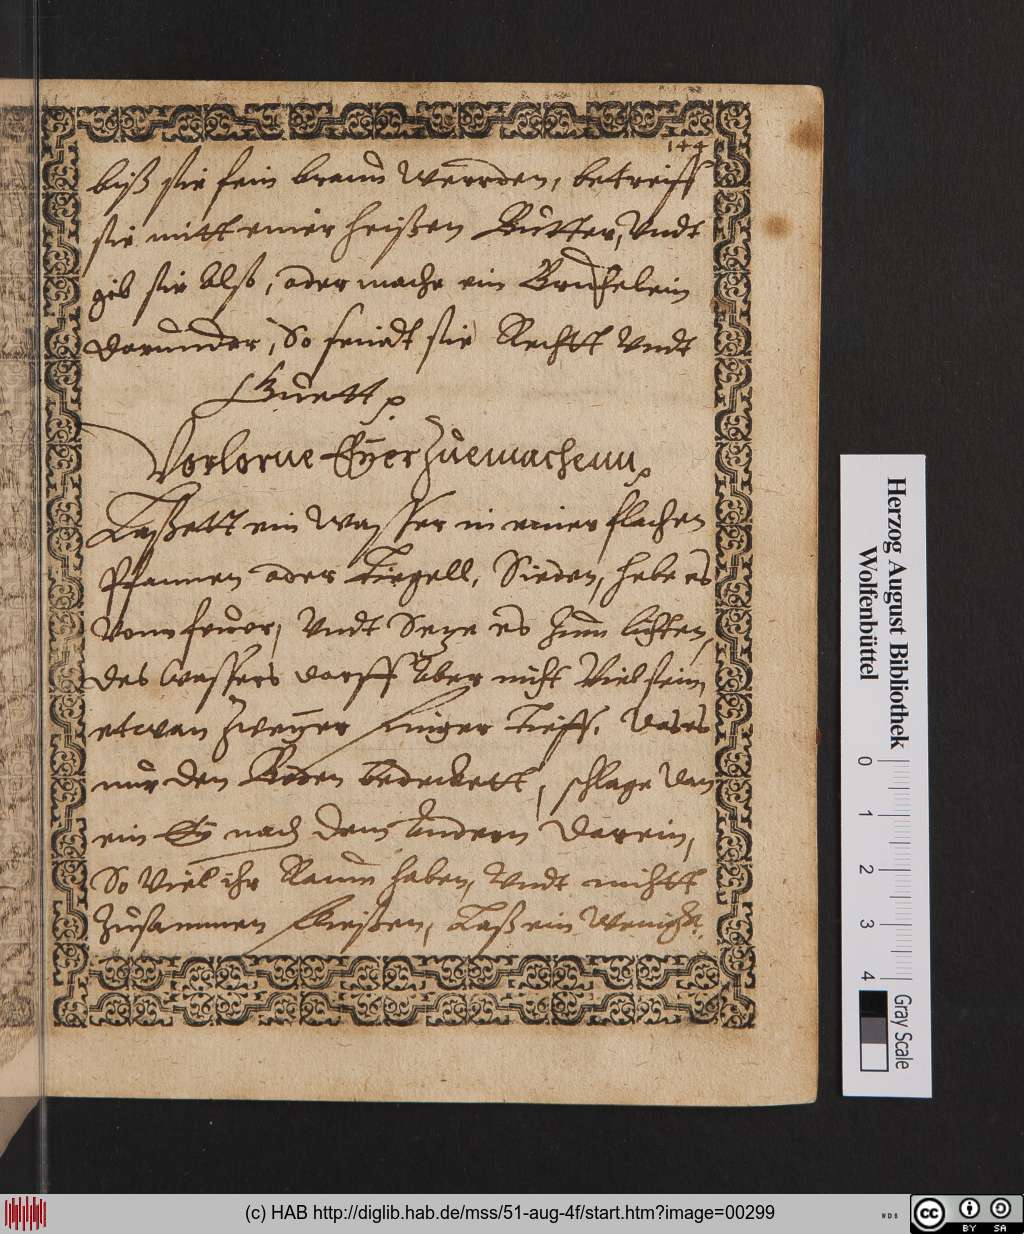 144
biß sie fein braun werrden, betreiff
sie mitt einer heißen Butter, Vndt
gib sie alß, oder mache ein Bruhelein
darunder, So seindt sie Rechtt Vndt
Guett
Vorlorne Eÿer Zuemachenn
Laßett ein Wasser in einer flachen
Pfannen oder Tiegell, Sieden, hebe es
Vom feuer, Vndt Seze es Zum lichten,
des wassers darff Aber nicht Viel sein,
etwan Zweÿer finger Tieff, das es
nur den Boden bedeckett, schlage dan
ein Eÿ nach dem Andern darein,
So Viel ihr Raum haben, Vndt nichtt
Zusammen fließen, Laß ein Wenigk
Herzog August Bibliothek
Wolfenbüttel
0 1 2 3 4
Gray Scale
(c) HAB http://diglib.hab.de/mss/51-aug-4f/start.htm?image=00299
WDB
cc BY SA